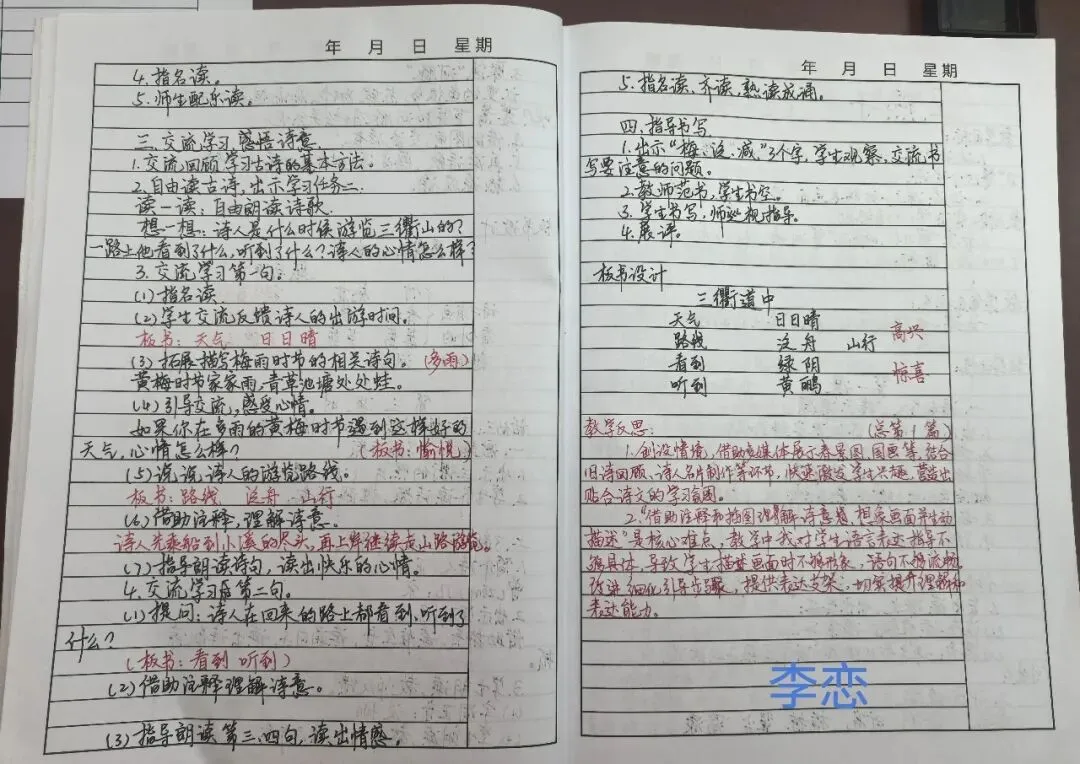 年 月 日 星期
4.指名读。
5.师生配乐读。
三.交流学习,感悟诗意
1.交流回顾学习古诗的基本方法。
2.自由读古诗,出示学习任务二.
读一读:自由朗读诗歌.
想一想:诗人是什么时候游览三衢山的?
一路上他看到了什么,听到了什么?诗人的心情怎么样?
3.交流学习第一句。
(1)指名读.
(2)学生交流反馈诗人的出游时间。
板书:天气 日日晴
(3)拓展描写梅雨时节的相关诗句。(多雨)
黄梅时节家家雨,青草池塘处处蛙。
(4)引导交流,感受心情。
如果你在多雨的黄梅时节遇到这样好的
天气,心情怎么样?(板书:愉悦)
(5)说说诗人的游览路线。
板书:路线 泛舟 山行
(6)借助注释,理解诗意。
诗人先乘船到小溪的尽头,再上岸继续走山路游览。
(7)指导朗读诗句,读出快乐的心情。
4.交流学习第二句。
(1)提问:诗人在回来的路上都看到、听到了
什么?
(板书:看到 听到)
(2)借助注释理解诗意。
(3)指导朗读第三、四句,读出情感。
年 月 日 星期
5.指名读、齐读,熟读成诵。
四.指导书写.
1.出示“梅、泛、减”3个字,学生观察,交流书
写要注意的问题。
2.教师范书,学生书空。
3.学生书写,师巡视指导。
4.展评。
板书设计
三衢道中
天气 日日晴
路线 泛舟 山行 高兴
看到 绿阴
听到 黄鹂 惊喜
教学反思: (总第1篇)
1.创设情境,借助多媒体展示春景图、国画等,结合
旧诗回顾、诗人名片制作等环节,快速激发学生兴趣,营造出
贴合诗文的学习氛围。
2.“借助注释和插图理解诗意,想象画面并生动
描述”是核心难点,教学中我对学生语言表达指导不
够具体,导致学生描述画面时不够形象,语句不够流畅,
改进细化引导步骤,提供表达支架,切实提升理解和
表达能力。
李恋